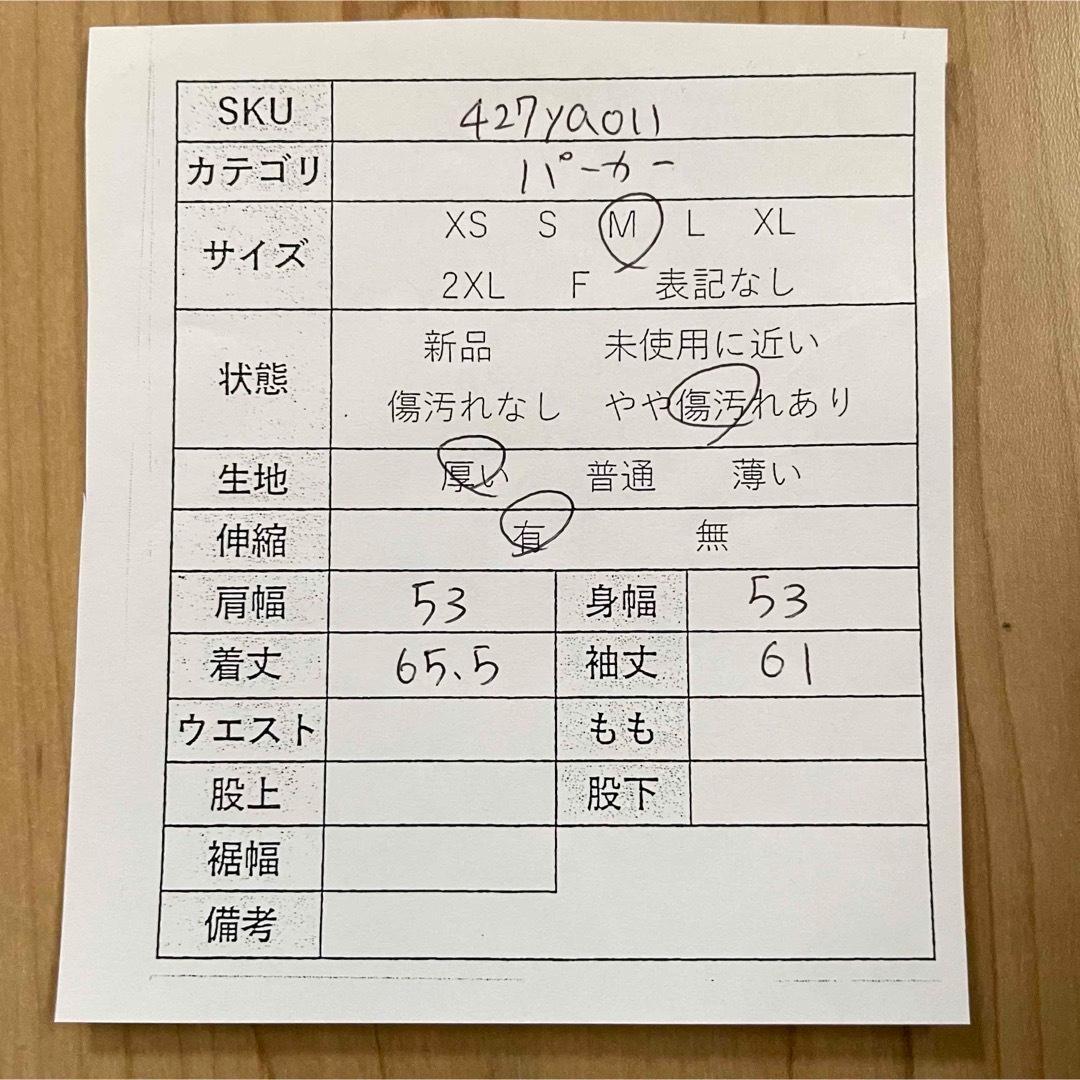 SKU 427ya011
カテゴリ パーカー
サイズ XS S M L XL
2XL F 表記なし
状態 新品 未使用に近い
傷汚れなし やや傷汚れあり
生地 厚い 普通 薄い
伸縮 有 無
肩幅 53 身幅 53
着丈 65.5 袖丈 61
ウエスト もも
股上 股下
裾幅
備考